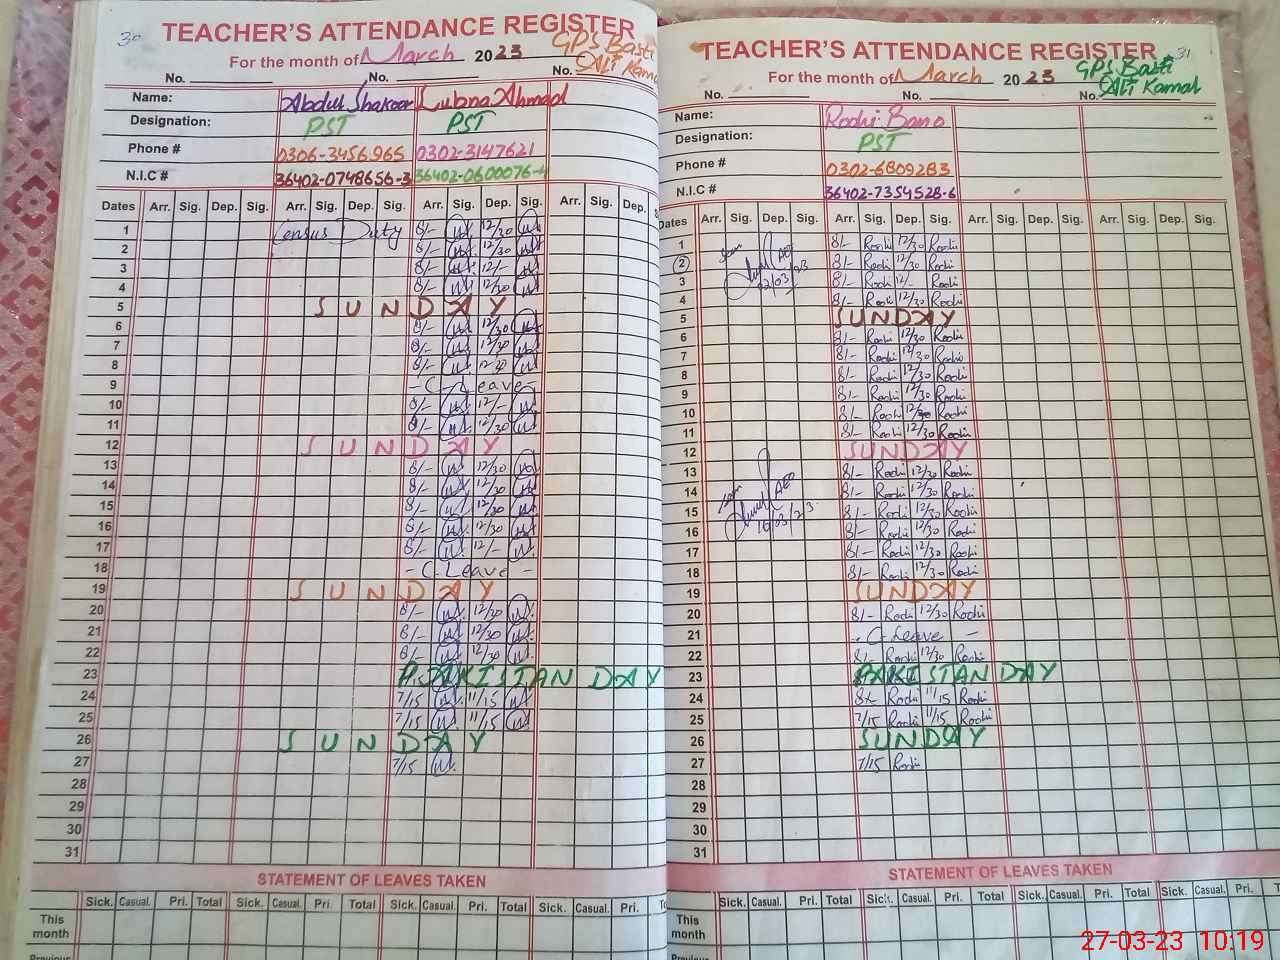 30
TEACHER'S ATTENDANCE REGISTER
For the month of March 2023
GPS Basti
No. No. No.
Name: Abdul Shakoor Lubna Ahmad
Designation: PST PST
Phone # 0306-3456965 0302-3147621
N.I.C # 36402-0748656-3 36402-0600076-4
Dates Arr. Sig. Dep. Sig. Arr. Sig. Dep. Sig. Arr. Sig. Dep. Sig. Arr. Sig. Dep.
1 Census Duty 8/- 12/30
2 8/- 12/30
3 8/- 12/-
4 8/- 12/30
5 SUNDAY
6 8/- 12/30
7 8/- 12/30
8 8/- 12/30
9 - C-Leave -
10 8/- 12/-
11 8/- 12/30
12 SUNDAY
13 8/- 12/30
14 8/- 12/30
15 8/- 12/30
16 8/- 12/30
17 8/- 12/-
18 - C-Leave -
19 SUNDAY
20 8/- 12/30
21 8/- 12/30
22 8/- 12/30
23 PAKISTAN DAY
24 7/15 11/15
25 7/15 11/15
26 SUNDAY
27 7/15
28
29
30
31
STATEMENT OF LEAVES TAKEN
Sick. Casual. Pri. Total Sick. Casual. Pri. Total Sick. Casual. Pri. Total Sick. Casual. Pri.
This month
Previous
31
TEACHER'S ATTENDANCE REGISTER
For the month of March 2023
GPS Basti
No. No. No. Ali Kamal
Name: Roohi Bano
Designation: PST
Phone # 0302-6809283
N.I.C # 36402-7354528-6
Dates Arr. Sig. Dep. Sig. Arr. Sig. Dep. Sig. Arr. Sig. Dep. Sig. Arr. Sig. Dep. Sig.
1 8/- Roohi 12/30 Roohi
2 8/- Roohi 12/30 Roohi
3 8/- Roohi 12/- Roohi
4 8/- Roohi 12/30 Roohi
5 SUNDAY
6 8/- Roohi 12/30 Roohi
7 8/- Roohi 12/30 Roohi
8 8/- Roohi 12/30 Roohi
9 8/- Roohi 12/30 Roohi
10 8/- Roohi 12/30 Roohi
11 8/- Roohi 12/30 Roohi
12 SUNDAY
13 8/- Roohi 12/30 Roohi
14 8/- Roohi 12/30 Roohi
15 8/- Roohi 12/30 Roohi
16 8/- Roohi 12/30 Roohi
17 8/- Roohi 12/30 Roohi
18 8/- Roohi 12/30 Roohi
19 SUNDAY
20 8/- Roohi 12/30 Roohi
21 - C-Leave -
22 8/- Roohi 12/30 Roohi
23 PAKISTAN DAY
24 Roohi 11/15 Roohi
25 7/15 Roohi 11/15 Roohi
26 SUNDAY
27 7/15 Roohi
28
29
30
31
STATEMENT OF LEAVES TAKEN
Sick. Casual. Pri. Total Sick. Casual. Pri. Total Sick. Casual. Pri. Total Sick. Casual. Pri.
This month
Previous
27-03-23 10:19